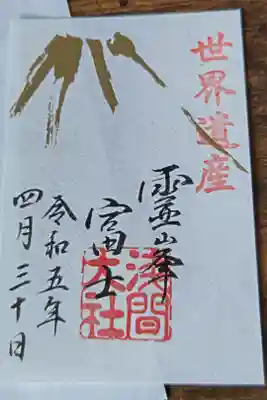 世界遺産
霊峰
富士
浅間
大社
令和五年
四月三十日